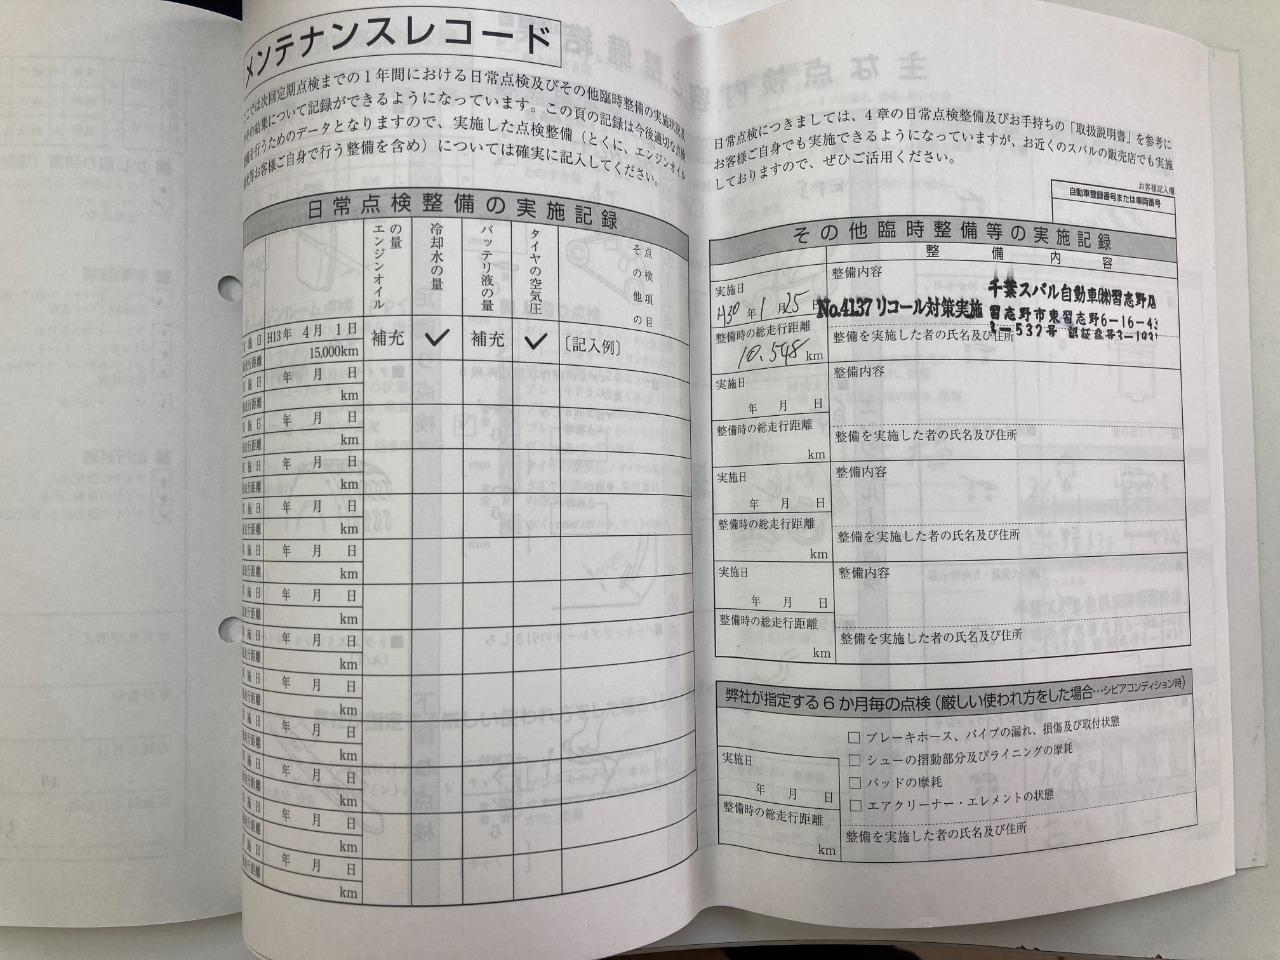 メンテナンスレコード
では次回定期点検までの1年間における日常点検及びその他臨時整備の実施状況
の結果について記録ができるようになっています。この頁の記録は今後適切な
を行うためのデータとなりますので、実施した点検整備(とくに、エンジンオイル
等お客様ご自身で行う整備を含め)については確実に記入してください。
日常点検整備の実施記録
エンジンオイルの量
冷却水の量
バッテリ液の量
タイヤの空気圧
その他の点検項目
施日 H13年 4月 1日 補充 ✓ 補充 ✓ 〔記入例〕
行距離 15,000km
施日 年 月 日
行距離 km
施日 年 月 日
行距離 km
施日 年 月 日
行距離 km
施日 年 月 日
行距離 km
施日 年 月 日
行距離 km
施日 年 月 日
行距離 km
施日 年 月 日
行距離 km
施日 年 月 日
行距離 km
施日 年 月 日
行距離 km
施日 年 月 日
行距離 km
施日 年 月 日
行距離 km
施日 年 月 日
行距離 km
日常点検につきましては、4章の日常点検整備及びお手持ちの「取扱説明書」を参考に
お客様ご自身でも実施できるようになっていますが、お近くのスバルの販売店でも実施
しておりますので、ぜひご活用ください。
お客様記入欄
自動車登録番号または車両番号
その他臨時整備等の実施記録
整備内容
実施日
H30年 1月 25日
整備時の総走行距離
10.548 km
整備内容
No.4137 リコール対策実施
千葉スバル自動車㈱習志野店
習志野市東習志野6-16-43
3-532号 認証番号3-1931
整備を実施した者の氏名及び住所
実施日
年 月 日
整備時の総走行距離
km
整備内容
整備を実施した者の氏名及び住所
実施日
年 月 日
整備時の総走行距離
km
整備内容
整備を実施した者の氏名及び住所
実施日
年 月 日
整備時の総走行距離
km
整備内容
整備を実施した者の氏名及び住所
弊社が指定する6か月毎の点検(厳しい使われ方をした場合…シビアコンディション時)
□ ブレーキホース、パイプの漏れ、損傷及び取付状態
□ シューの摺動部分及びライニングの摩耗
□ パッドの摩耗
□ エアクリーナー・エレメントの状態
実施日
年 月 日
整備時の総走行距離
km
整備を実施した者の氏名及び住所